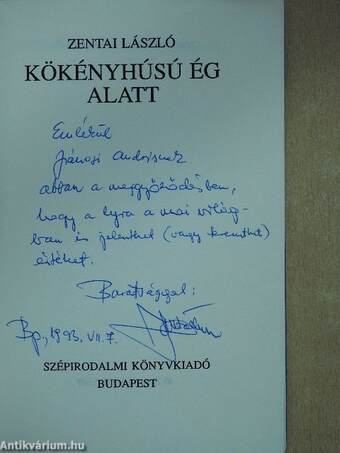 ZENTAI LÁSZLÓ
KÖKÉNYHÚSÚ ÉG
ALATT
Emlékül
Jánosi Andrisnak
abban a meggyőződésben,
hogy a lyra a mai világ-
ban is jelenthet (vagy teremthet)
értéket.
Barátsággal:
Bp., 1993. VII. 7.
SZÉPIRODALMI KÖNYVKIADÓ
BUDAPEST
Antikvárium.hu